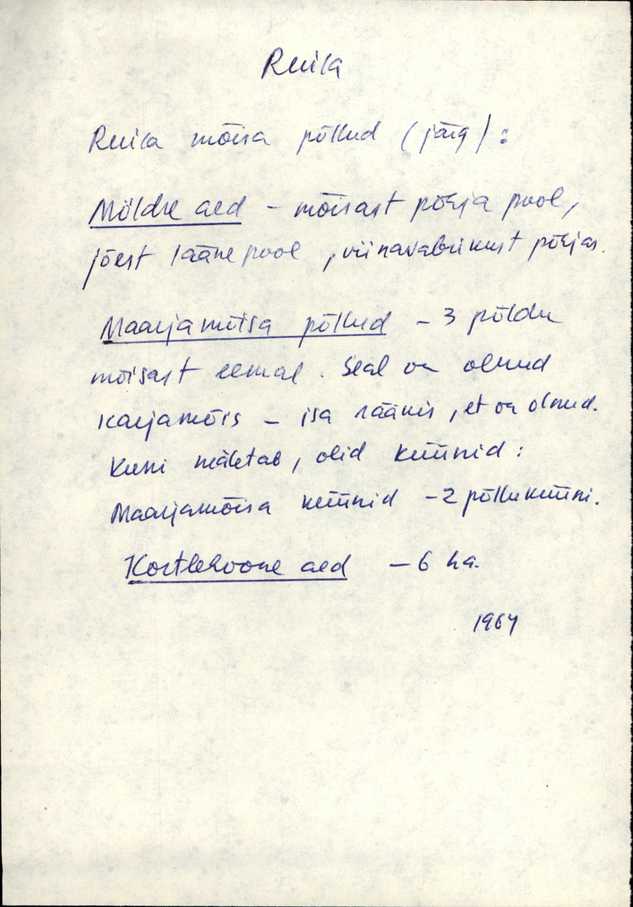 Ruila
Ruila mõisa põllud (järg):
Möldre aed - mõisast põhja pool,
jõest lääne pool, viinavabrikust põhjas.
Maarjamõisa põllud - 3 põldu
mõisast eemal. Seal on olnud
karjamõis - isa rääkis, et on olnud.
Kuni mäletab, olid küünid:
Maarjamõisa küünid - 2 põlluküüni.
aed - 6 ha.
1964